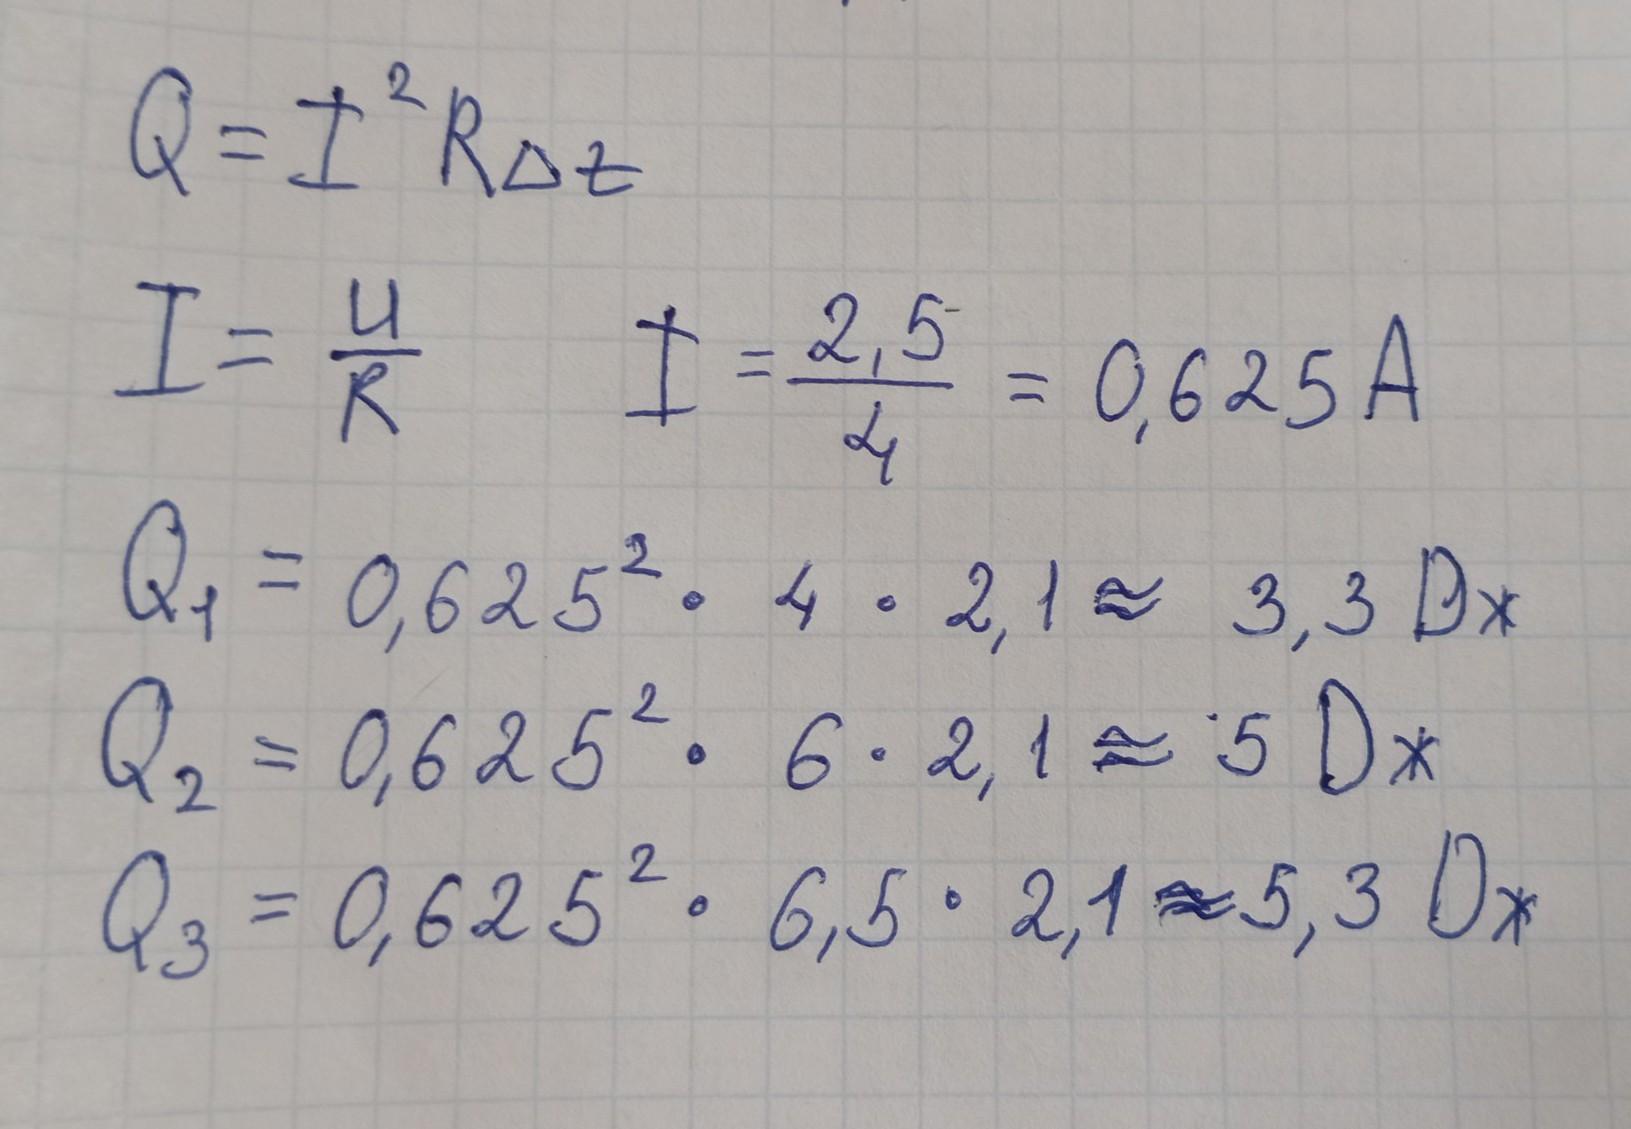 Q = I² R Δt
I = U/R    I = 2,5/4 = 0,625 А
Q₁ = 0,625² · 4 · 2,1 ≈ 3,3 Дж
Q₂ = 0,625² · 6 · 2,1 ≈ 5 Дж
Q₃ = 0,625² · 6,5 · 2,1 ≈ 5,3 Дж